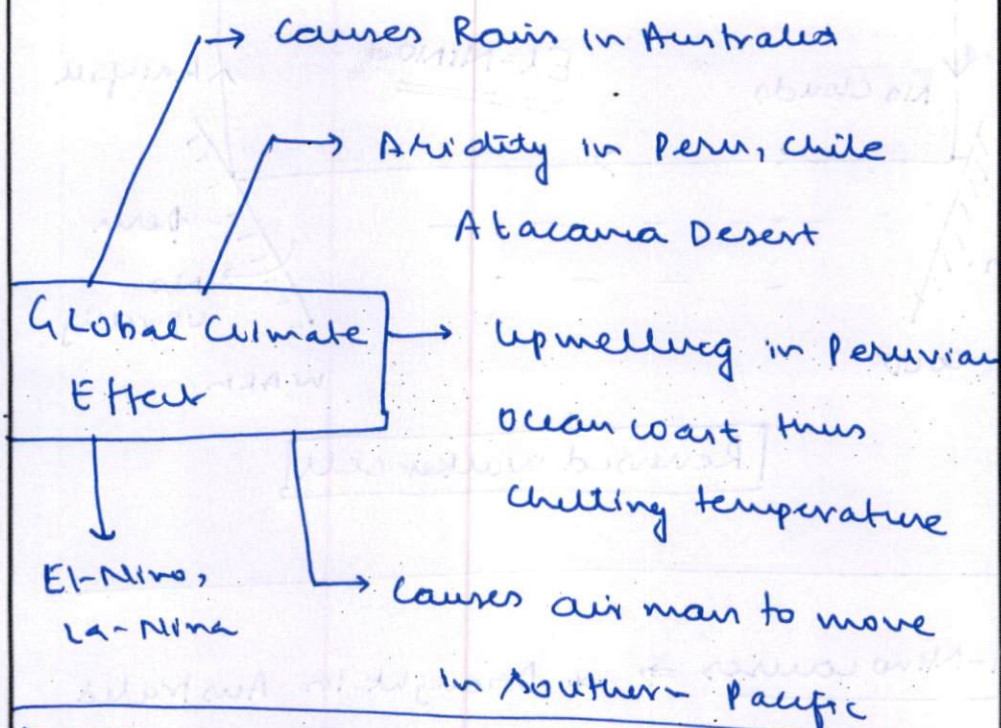 Causes Rain in Australia
Aridity in Peru, Chile
Atacama Desert
Global Climate
Effect
Upwelling in Peruvian
ocean coast thus
chilling temperature
El-Nino,
La-Nina
Causes air mass to move
in Southern Pacific